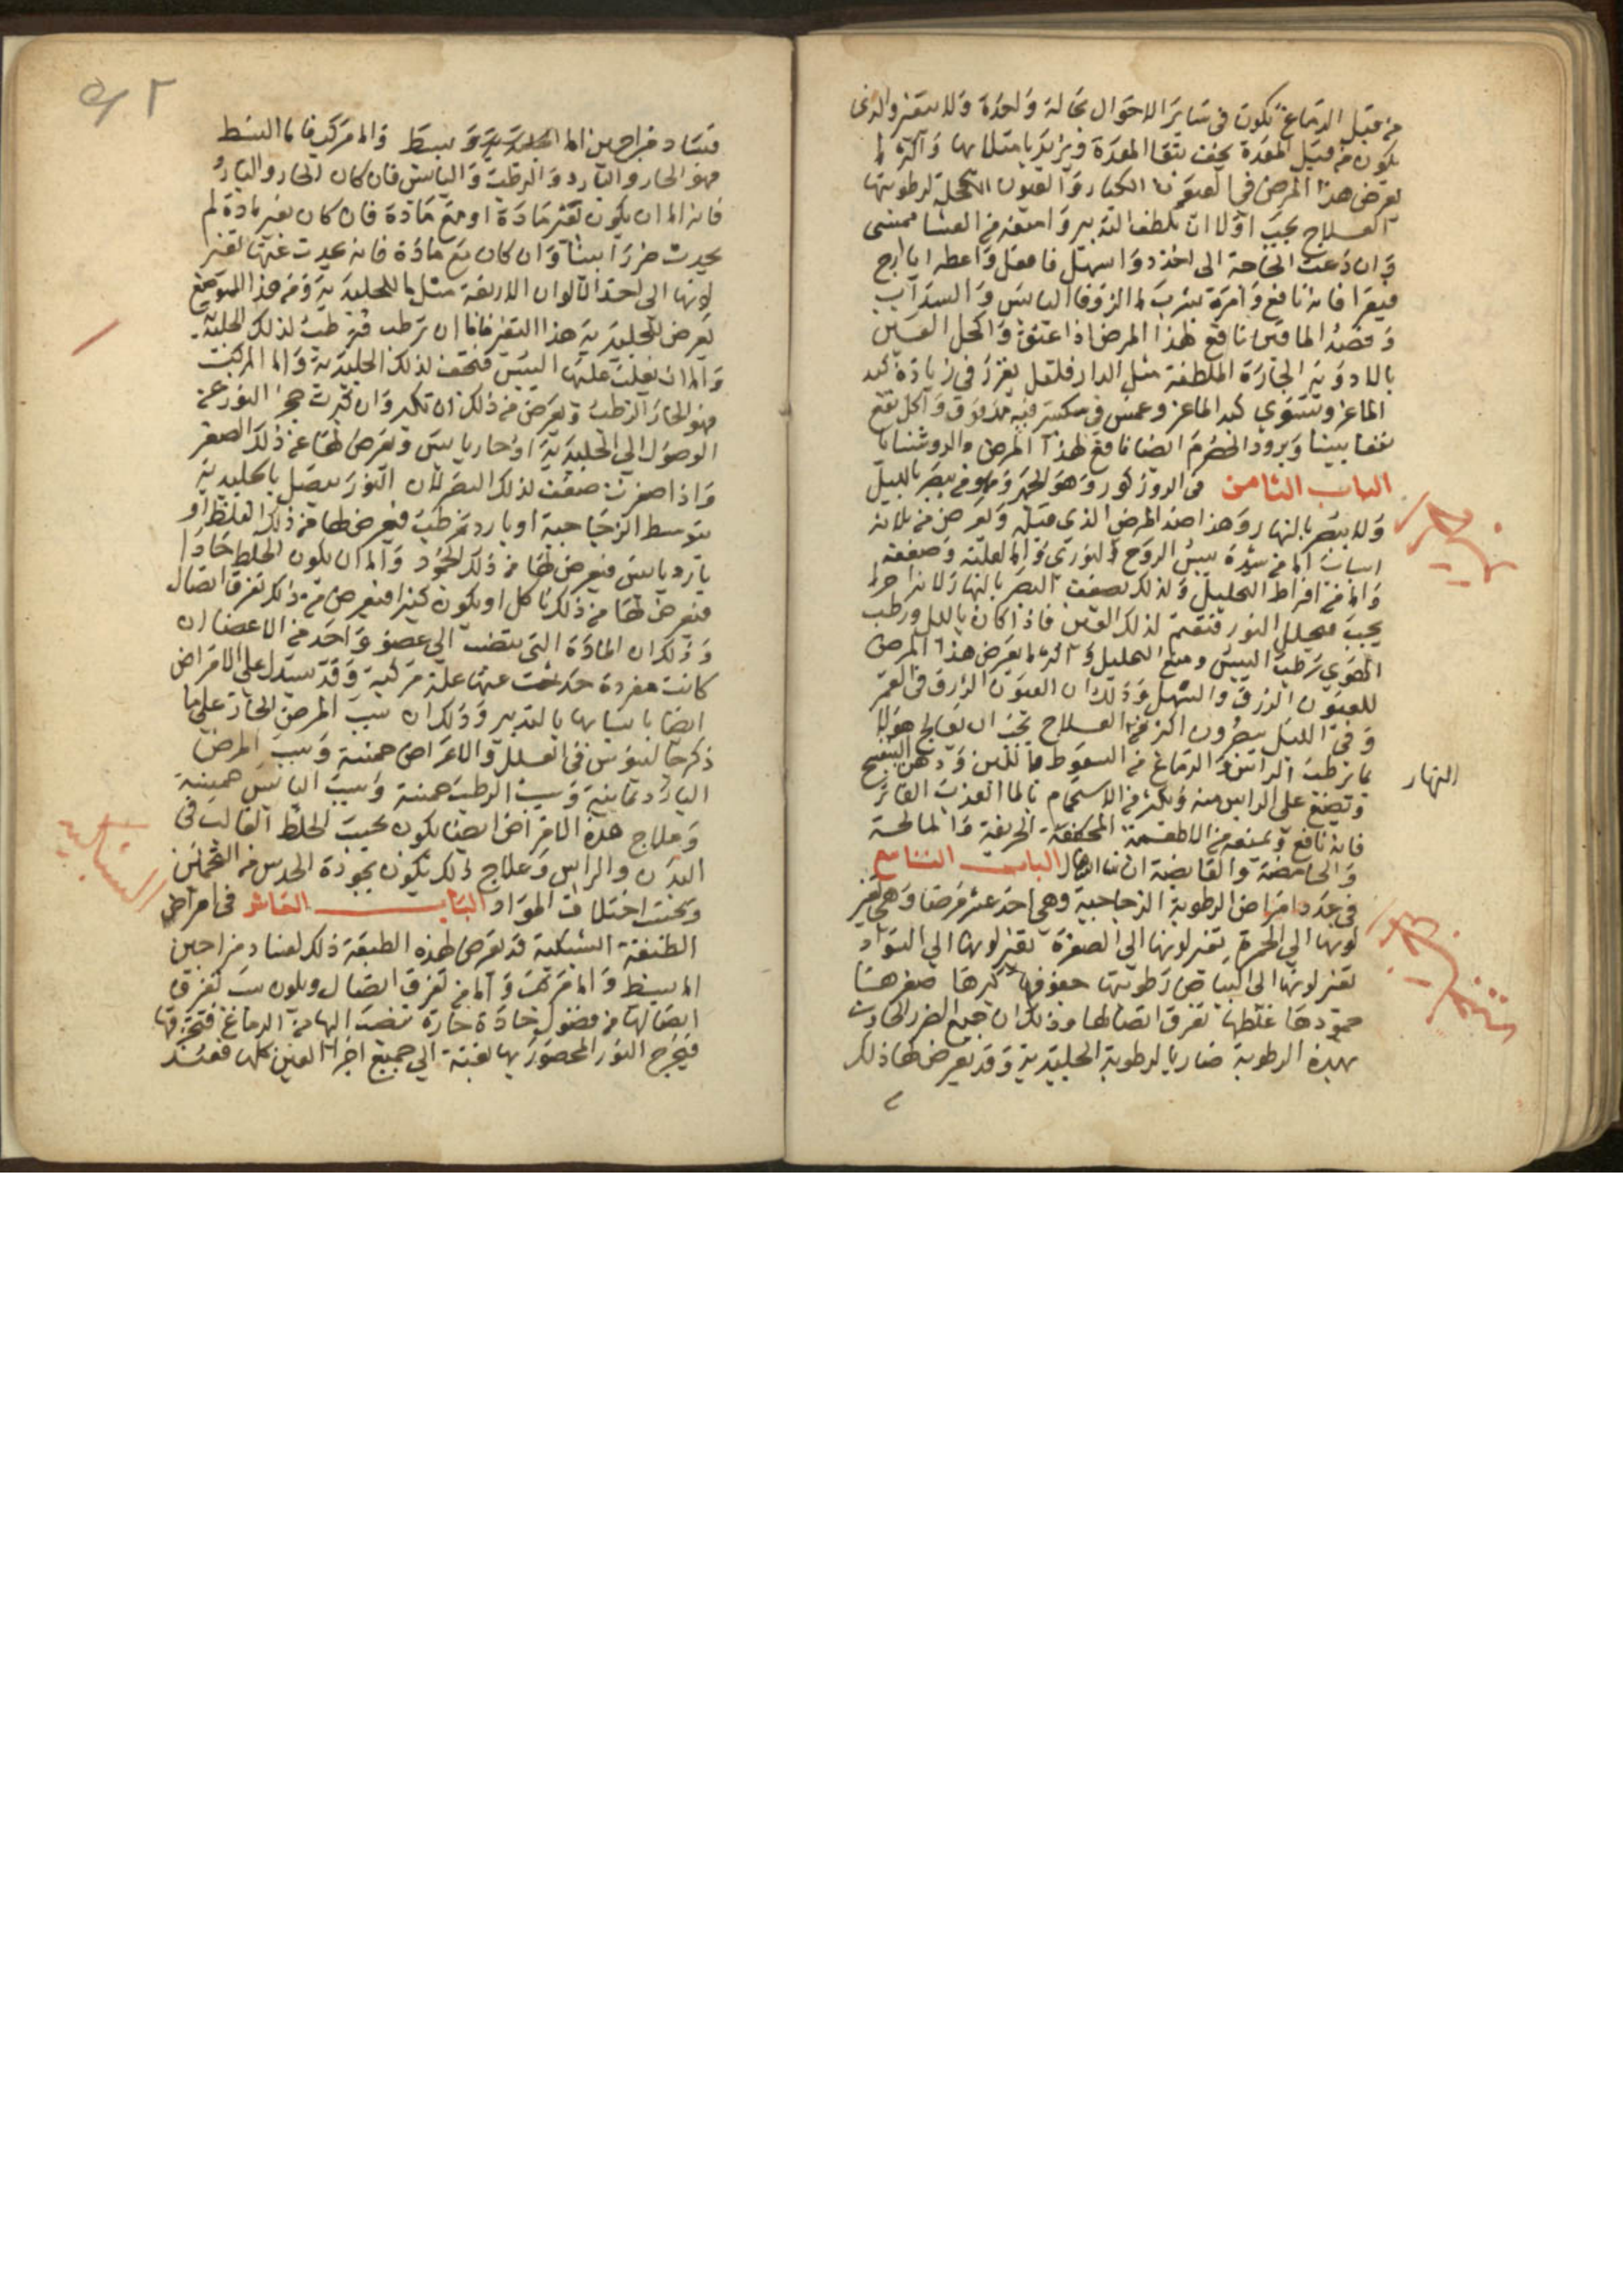 من قبل الدماغ تكون في سائر الاحوال بحالة واحدة ولا يتغير والذي
يكون من قبل المعدة يخف بنقا المعدة ويزيد بامتلايها واكثر ما
يعرض هذا المرض في العيون الكبار والعيون الكحل لرطوبتها
العلاج يجب اولا ان يلطف التدبير وامنعه من العشا ممسى
وان دعت الحاجة الى اخذ دوا مسهل فافعل واعطه ايارج
فيقرا فانه نافع وامره بشرب ما الزوفا اليابس والسداب
وفصد الماقين نافع لهذا المرض اذا عتق واكحل العين
بالادوية الحارة الملطفة مثل الدارفلفل يغرز في زيادة كبد
الماعز وتشوي كبد الماعز وغمس في سكبينه مدقوق واكل نفع
نفعا بينا وبرود الحصرم ايضا نافع لهذا المرض والروشنايا
الباب الثامن في الروزكور وهو الجهر وهو من يبصر بالليل
ولا يبصر بالنهار وهذا ضد المرض الذي قبله ويعرض من ثلاثة
اسباب اما من شدة يبس الروح النوري واما لقلته وضعفه
واما من افراط التحليل ولذلك يضعف البصر بالنهار لانه
يجب فيحلل النور فتعتم لذلك العين فاذا كان بالليل ورطب
الهوي رطب اليبس ومنع التحليل واكثر ما يعرض هذا المرض
للعيون الزرق والشهل وذلك ان العيون الزرق في القمر
وفي الليل يبصرون اكثر العلاج يجب ان يعالج هولا
بما يرطب الراس والدماغ من السعوط باللبن ودهن البنفسج
النهار
وتضع على الراس منه ويكثر من الاستحمام بالما العذب الفاتر
فانه نافع ويمنع من الاطعمة المجففة الحريفة والمالحة
والحامضة والقابضة ان شا الله الباب التاسع
في عدد امراض الرطوبة الزجاجية وهي احد عشر مرضا وهي تغير
لونها الى الحمرة تغير لونها الى الصفرة تغير لونها الى السواد
تغير لونها الى البياض رطوبتها جفوفها كبرها صغرها
جمودها غلظها تفرق اتصالها وذلك ان جميع الضرر الحادث
بهذه الرطوبة ضار بالرطوبة الجليدية وقد يعرض لها ذلك
فساد مزاجين اما بسيط واما مركب فاما البسيط
فهو الحار والبارد والرطب واليابس فان كان الحار والبارد
فانه اما ان يكون بغير مادة او مع مادة فان كان بغير مادة لم
يحدث ضررا بينا وان كان مع مادة فانه يحدث عنها تغير
لونها الى احد الالوان الاربعة مثل ما للجليدية ومن هذا الموضع
يعرض للجليدية هذا التغير فاما ان ترطب فترطب لذلك الجليدية
واما ان يغلب عليها اليبس فتجف لذلك الجليدية واما المركب
فهو الحار الرطب ويعرض من ذلك ان تكبر وان كبرت حجز النور عن
الوصول الى الجليدية او حار يابس ويعرض لها عن ذلك الصغر
واذا صغرت ضعف لذلك البصر لان النور يتصل بالجليدية
بتوسط الزجاجية او بارد رطب فيعرض لها من ذلك الغلظ او
بارد يابس فيعرض لها من ذلك الجمود واما ان يكون الخلط حادا
فيعرض لها من ذلك تاكل او يكون كثيرا فيعرض من ذلك تفرق اتصال
وذلك ان المادة التي تنصب الى عضو واحد من الاعضا ان
كانت مفردة حدثت عنها علة مركبة وقد يستدل على الامراض
ايضا باسبابها بالتدبير وذلك ان سبب المرض الحار على ما
ذكر جالينوس في العلل والاعراض خمسة وسبب المرض
البارد ثمانية وسبب الرطب خمسة وسبب اليابس خمسة
وعلاج هذه الامراض ايضا يكون بحسب الخلط الغالب في
البدن والراس وعلاج ذلك يكون بجودة الحدس من
وبحسب اختلاف المواد الباب العاشر في امراض
الطبقة الشبكية قد يعرض لهذه الطبقة ذلك لفساد مزاجين
اما بسيط واما مركب واما من تفرق اتصال ويكون سبب تفرق
اتصالها من فضول حادة حارة تنصب اليها من الدماغ فتحرقها
فيخرج النور المحصور بها بغتة الى جميع اجزا العين كلها فعند